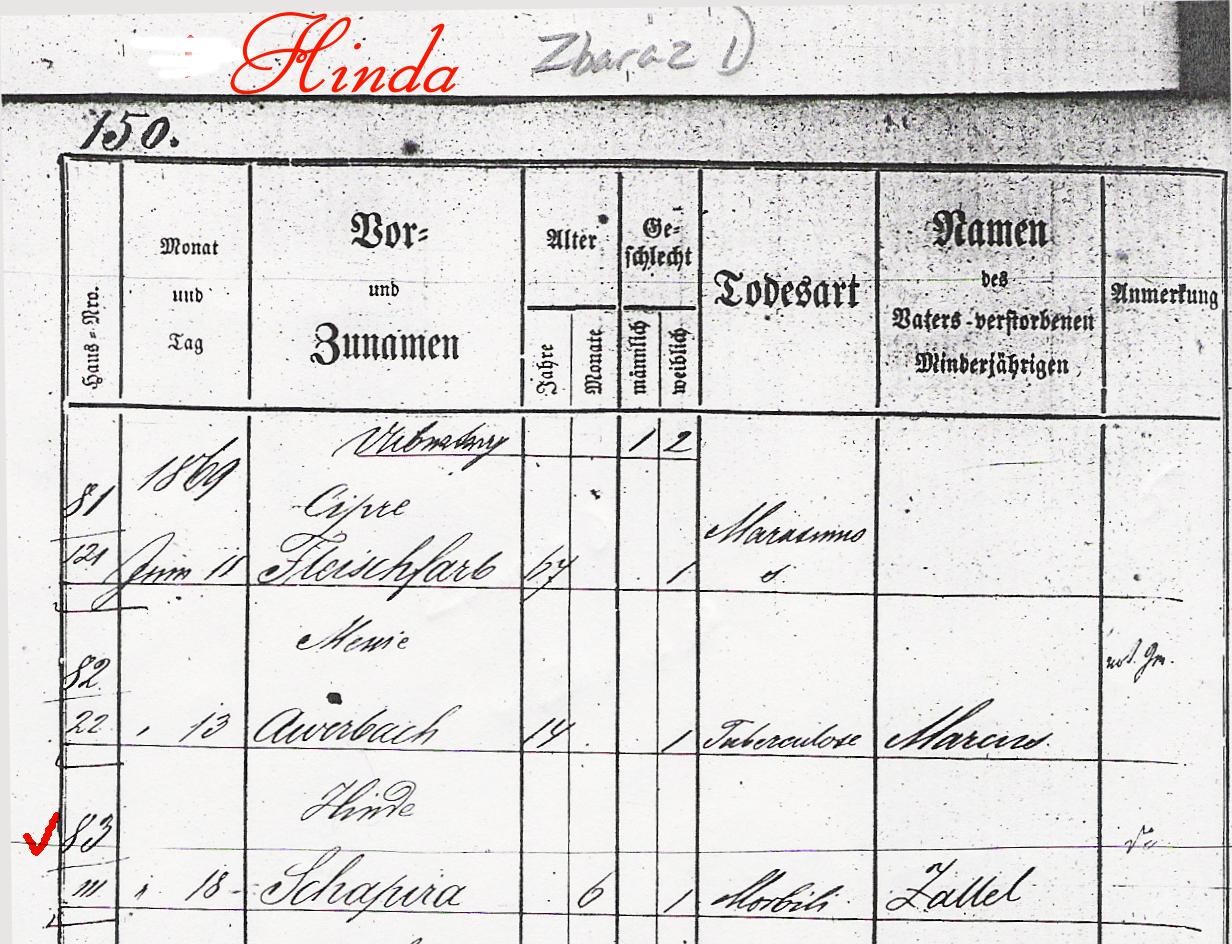 Hinda Zbaraz D
150.
Haus-Nro.
Monat
und
Tag
Vor-
und
Zunamen
Alter
Jahre
Monate
Ge-
schlecht
männlich
weiblich
Todesart
Namen
des
Vaters-verstorbenen
Minderjährigen
Anmerkung
1 2
1869
81
Cipre
Marasmus
121 Juni 11 Fleischfarb 67 1
82
22 " 13 Auerbach 14 1 Tuberculose Marcus
Hinde
83
111 " 18 Schapira 6 1 Morbili Zallel